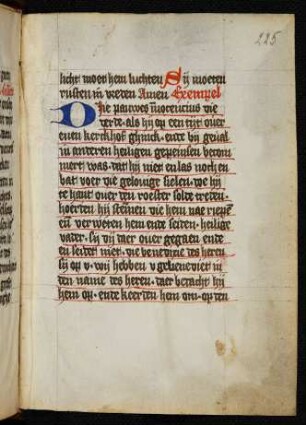 225
licht moet hem luchten Sij moeten
rusten in vreden Amen Exempel
Die pauwes innocencius die
derde. als hij op een tijt over
enen kerckhof ghinck. ende bij geval
in anderen heiligen gepeinsen becom
mert was. dat hij niet en las noch en
bat voer die gelovige sielen. doe hij
te hant over den voester solde treden.
hoerden hij stemen die hem nae riepen
ver weten hem ende seiden. heilige
vader. sij dij daer over gegaen ende
en seidet niet. die benedixie des heren
sij op v. wij hebben v gebenediet in
den name des heren. daer bedacht hij
hem op. ende keerden hem om. op den